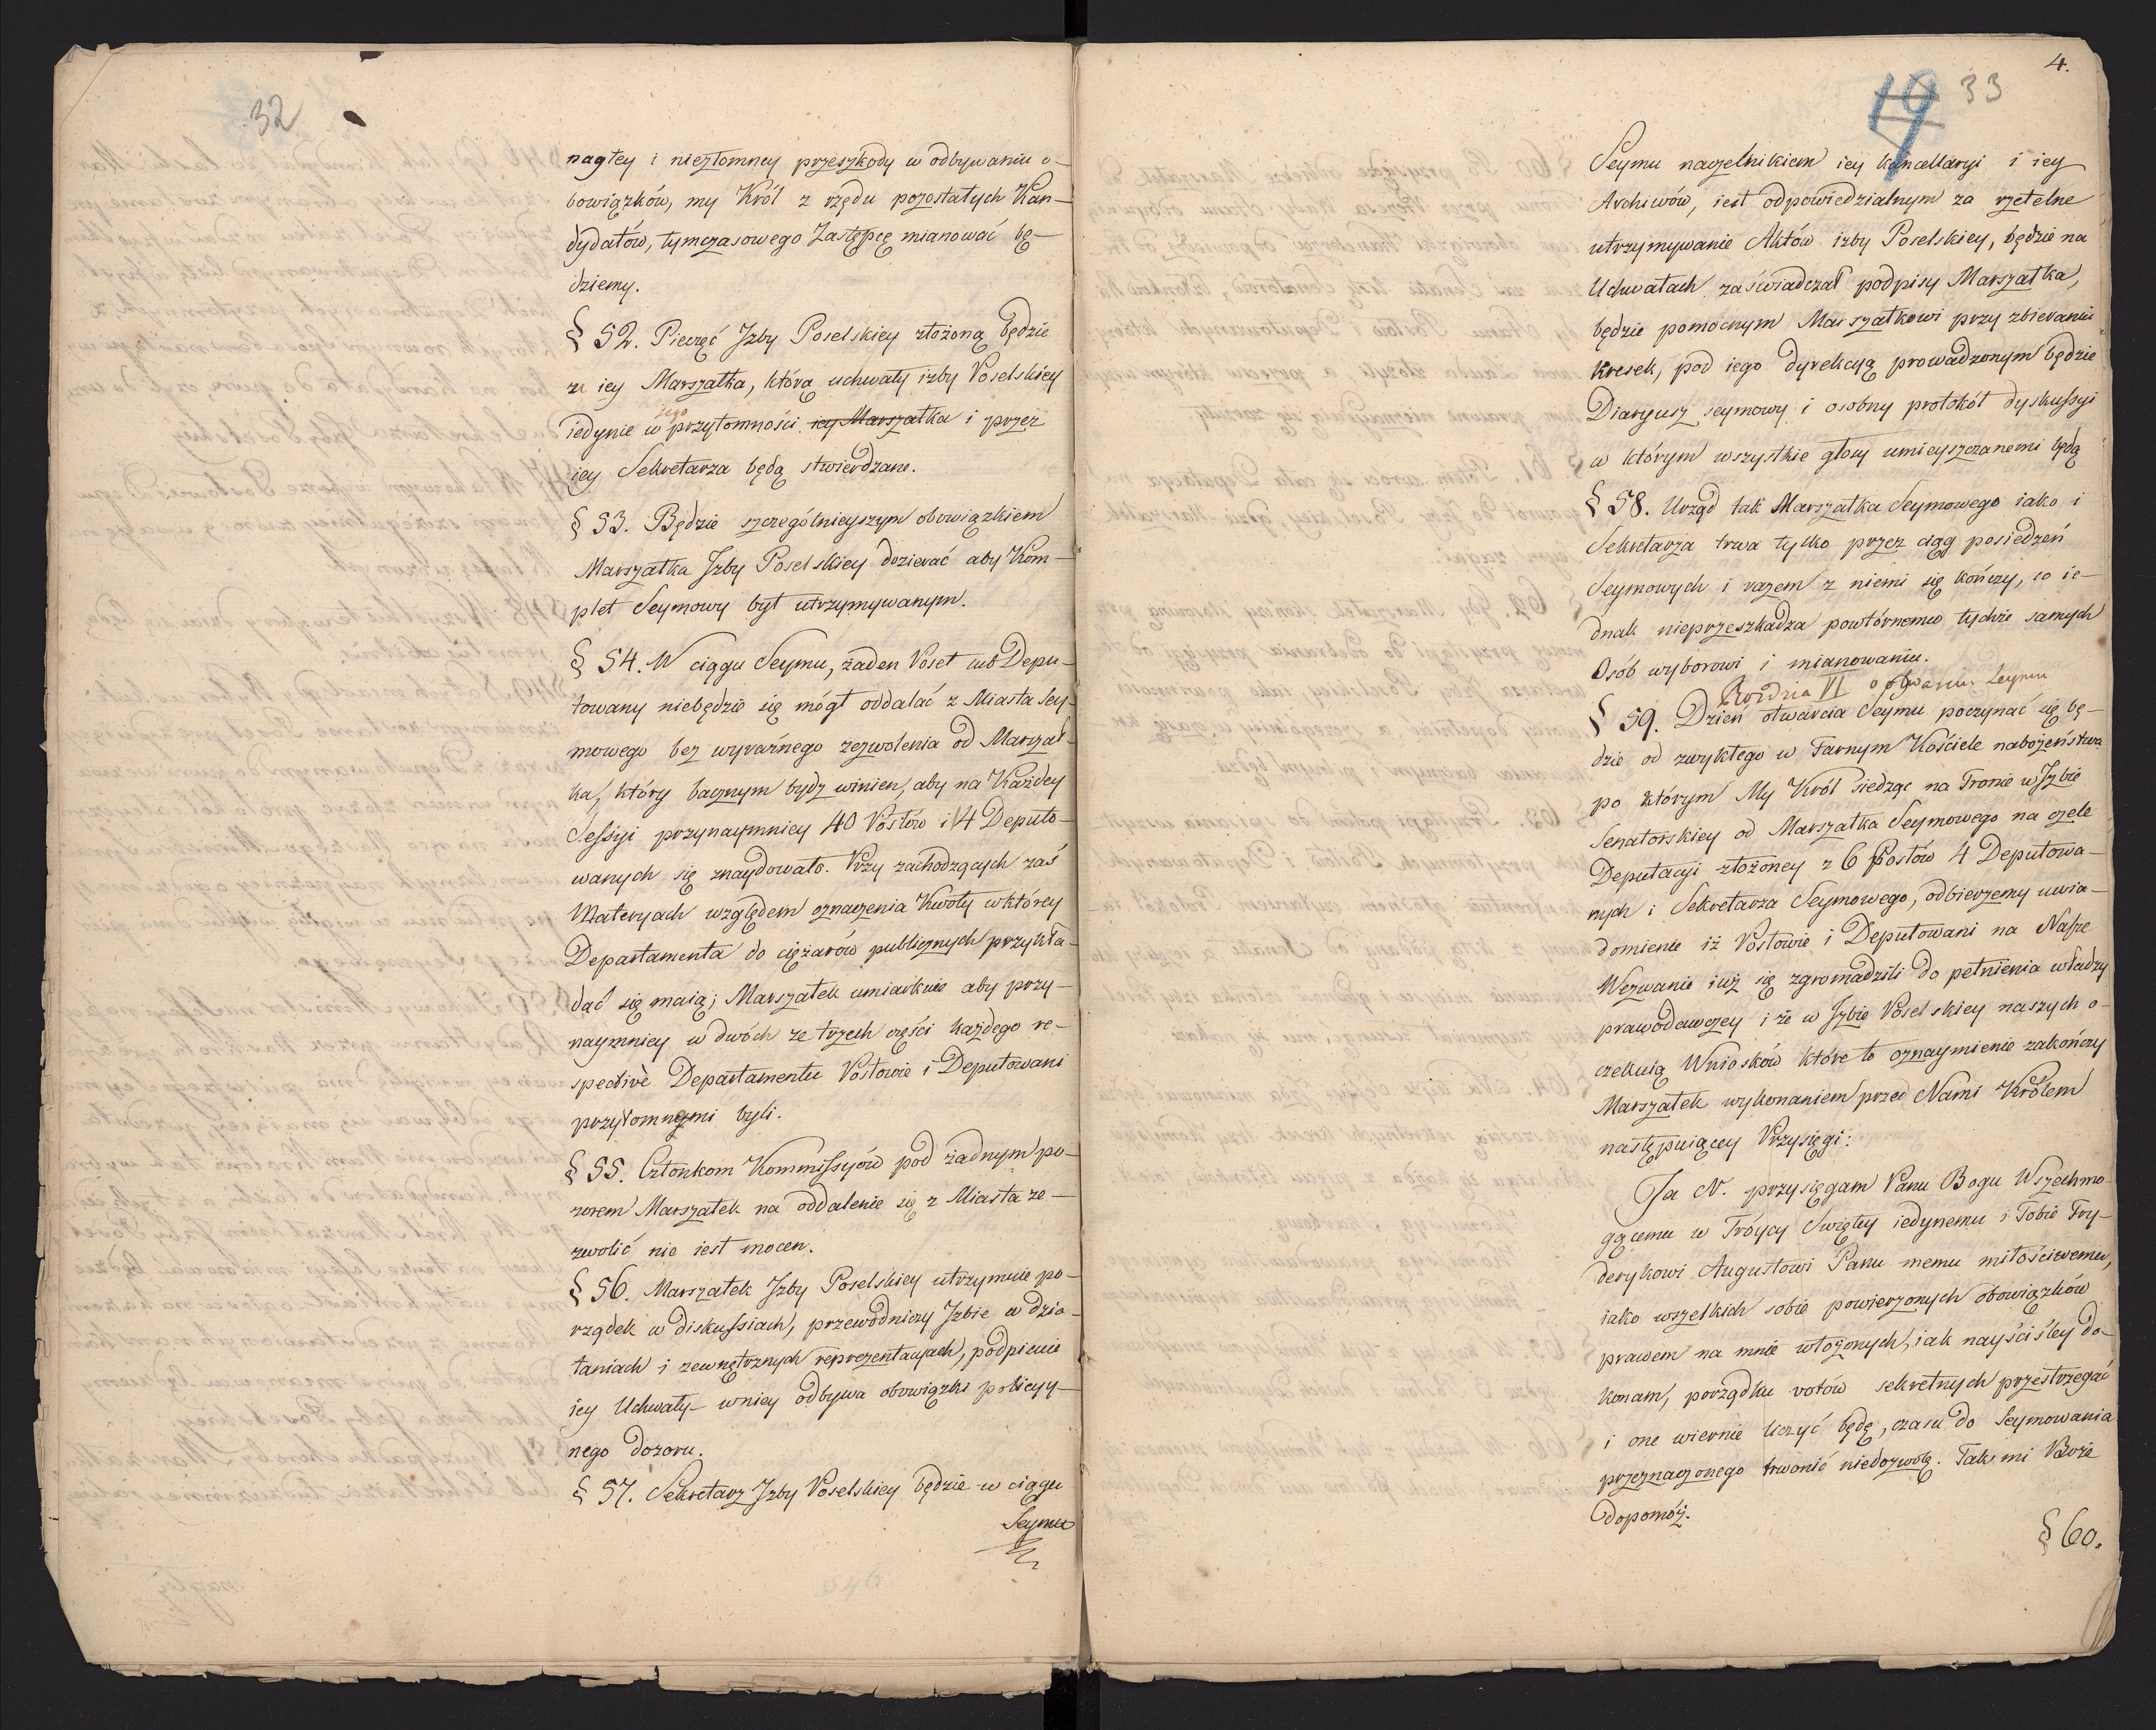 32
nagłey i niezłomney przeszkody w odbywaniu o-
bowiązków, my Król z rzędu pozostałych Kan-
dydatów, tymczasowego Zastępcę mianować bę-
dziemy.
§ 52. Pieczęć Jzby Poselskiey złożoną będzie
u iey Marszałka, którą uchwały izby Poselskiey
iedynie w jego przytomności iey Marszałka i przez
iey Sekretarza będą stwierdzane.
§ 53. Będzie szczególnieyszym obowiązkiem
Marszałka Jzby Poselskiey dozierać aby Kom-
plet Seymowy był utrzymywanym.
§ 54. W ciągu Seymu, żaden Poseł lub Depu-
towany niebędzie się mógł oddalać z Miasta Sey-
mowego bez wyraźnego zezwolenia od Marszał-
ka, który bacznym bydz winien, aby na Każdey
Sessyi przynaymniey 40 Posłów i 14 Deputo-
wanych się znaydowało. Przy zachodzących zaś
Materyach względem oznaczenia Kwoty w którey
Departamenta do ciężarów publicznych przykła-
dać się maią; Marszałek umiarkuie aby przy-
naymniey w dwóch ze trzech części każdego re-
spective Departamentu Posłowie i Deputowani
przytomnemi byli.
§ 55. Członkom Kommissyów pod żadnym po-
zorem Marszałek na oddalenie się z Miasta ze-
zwolić nie iest mocen.
§ 56. Marszałek Jzby Poselskiey utrzymuie po-
rządek w diskussiach, przewodniczy Jzbie w dzia-
łaniach i zewnętrznych reprezentacyach, podpisuie
iey Uchwały w niey odbywa obowiązki policyy-
nego dozoru.
§ 57. Sekretarz Jzby Poselskiey będzie w ciągu
Seymu
4.
19 33
Seymu naczelnikiem iey kancellaryi i iey
Archiwów, iest odpowiedzialnym za rzetelne
utrzymywanie Aktów izby Poselskiey, będzie na
Uchwałach zaświadczał podpisy Marszałka,
będzie pomocnym Marszałkowi przy zbieraniu
kresek, pod iego dyrekcyą prowadzonym będzie
Diaryusz seymowy i osobny protokół dyskussyi
w którym wszystkie głosy umieyszczanemi będą
§ 58. Urząd tak Marszałka Seymowego iako i
Sekretarza trwa tylko przez ciąg posiedzeń
Seymowych i razem z niemi się kończy, co ie-
dnak nieprzeszkadza powtórnemu tychże samych
Osób wyborowi i mianowaniu.
Rozdzia VI o otwarciu Seymu
§ 59. Dzień otwarcia Seymu poczynać się bę-
dzie od zwykłego w Farnym Kościele nabożeństwa
po którym My Król siedząc na Tronie w Jzbie
Senatorskiey od Marszałka Seymowego na czele
Deputacyi złożoney z 6 Posłów 4 Deputowa-
nych i Sekretarza Seymowego, odbierzemy uwia-
domienie iż Posłowie i Deputowani na Nasze
Wezwanie iuż się zgromadzili do pełnienia władzy
prawodawczey i że w Jzbie Poselskiey naszych o-
czekuią Wniosków które to oznaymienie zakończy
Marszałek wykonaniem przed Nami Królem
następuiącey Przysięgi:
Ja N. przysięgam Panu Bogu Wszechmo-
gącemu w Tróycy Swiętey iedynemu i Tobie Fry-
derykowi Augustowi Panu memu miłościwemu,
iako wszelkich sobie powierzonych obowiązków
prawem na mnie włożonych, iak nayściśley do-
konam, porządku votów sekretnych przestrzegać
i one wiernie liczyć będę, czasu do Seymowania
przeznaczonego trwonić niedozwolę. Tak mi Boże
dopomóż.
§ 60.